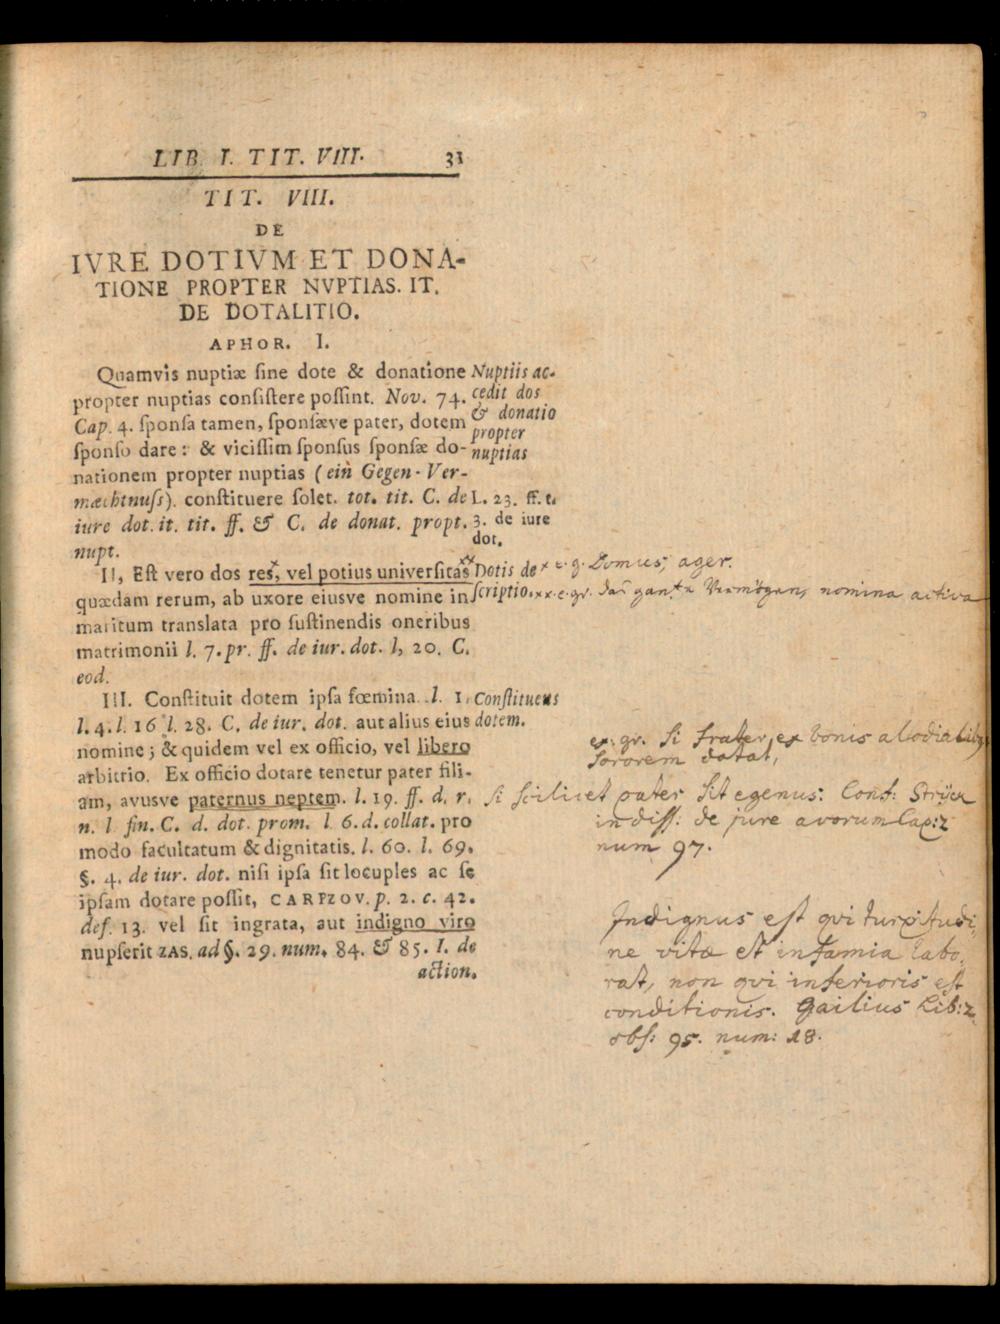 LIB. I. TIT. VIII. 33
TIT. VIII.
DE
IVRE DOTIVM ET DONA-
TIONE PROPTER NVPTIAS. IT.
DE DOTALITIO.
APHOR. I.
Quamvis nuptiæ ſine dote & donatione
propter nuptias conſiſtere poſſint. Nov. 74.
Cap. 4. ſponſa tamen, ſponſæve pater, dotem
ſponſo dare: & viciſſim ſponſus ſponſæ do-
nationem propter nuptias (ein Gegen-Ver-
mæchtnuſs). conſtituere ſolet. tot. tit. C. de
iure dot. it. tit. ff. & C. de donat. propt.
nupt.
Nuptiis ac-
cedit dos
& donatio
propter
nuptias
L. 23. ff. t.
3. de iure
dot.
II, Eſt vero dos res, vel potius univerſitas
quædam rerum, ab uxore eiusve nomine in
maritum translata pro ſuſtinendis oneribus
matrimonii l. 7. pr. ff. de iur. dot. l, 20. C.
eod.
Dotis de
ſcriptio.
x e. g. Domus, ager.
xx. e. gr. das gantze Vermögen, nomina activa
III. Conſtituit dotem ipſa fœmina. l. 1.
l. 4. l. 16 l. 28. C. de iur. dot. aut alius eius
nomine; & quidem vel ex officio, vel libero
arbitrio. Ex officio dotare tenetur pater fili-
am, avusve paternus neptem. l. 19. ff. d. r.
n. l fin. C. d. dot. prom. l 6. d. collat. pro
modo facultatum & dignitatis. l. 60. l. 69.
§. 4. de iur. dot. niſi ipſa ſit locuples ac ſe
ipſam dotare poſſit, CARPZOV. p. 2. c. 42.
def. 13. vel ſit ingrata, aut indigno viro
nupſerit ZAS. ad §. 29. num. 84. & 85. I. de
action.
Conſtituens
dotem.
ex: gr. ſi frater ex bonis alodialibus
ſororem dotat,
ſi ſcilicet pater ſit egenus. Conf: Stryck
in diſſ: de jure avorum Cap: 2
num 97.
Indignus eſt qvi turpitudi-
ne vitæ et infamia labo-
rat, non qvi inferioris eſt
conditionis. Gailius Lib: 2.
obſ: 95. num: 18.